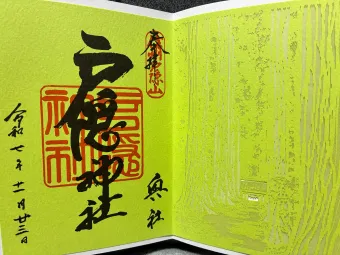 奉拝
戸隠神社
戸隠
神社
奥社
令和七年十一月廿三日